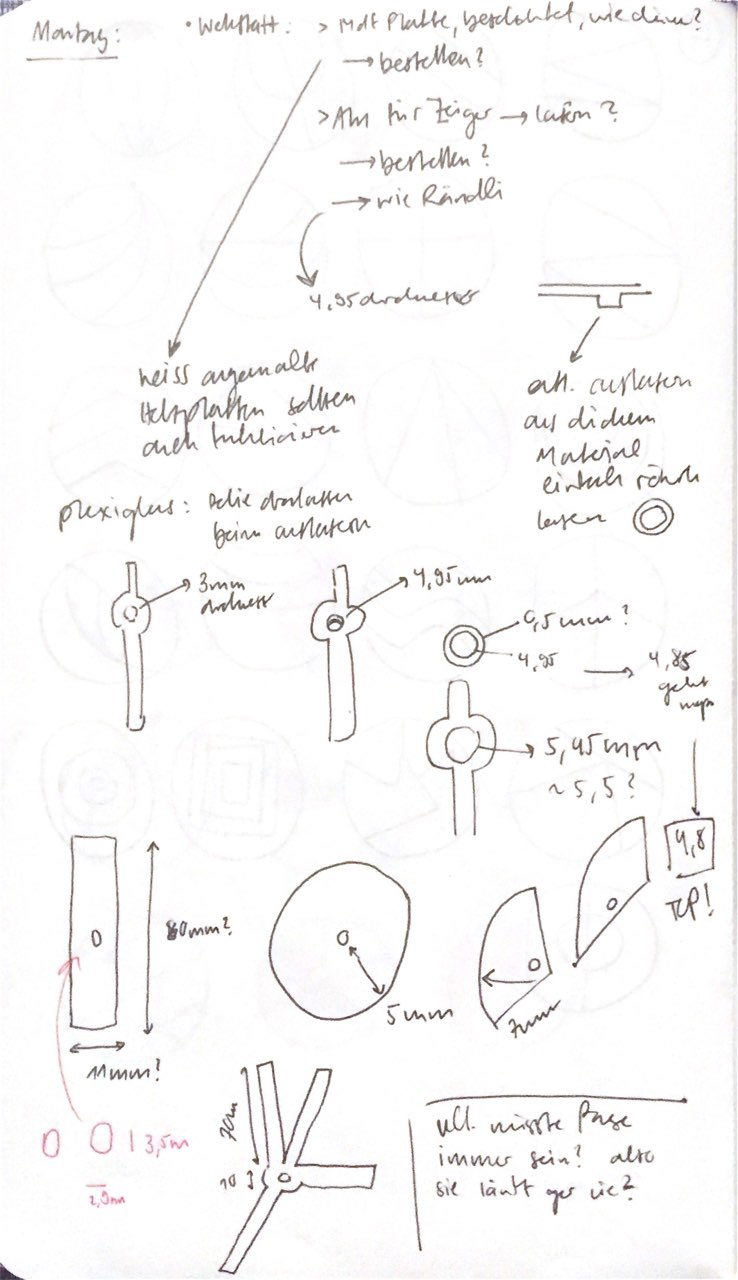 Montag: • Wekstatt: > Mdf Platte, beschichtet, wie dünn?
→ bestellen?
> Alu für Zeiger → lasern?
→ bestellen?
→ wie Rändli
4,95 durchmesser
weiss angemalte
Holzplatten sollten
auch funktionieren
evtl. auslasern
aus dickem
Material
einfach
lasern
plexiglas: Folie dranlassen
beim auslasern
3mm
durchmess
4,95mm
0,5mm?
4,95 → 4,85
geht
5,45mm
~5,5?
4,8
TOP!
80mm?
11mm?
5mm
7mm
3,5m
2,9mm
70m
10
vll. müsste Pause
immer sein? also
sie läuft gar nie?